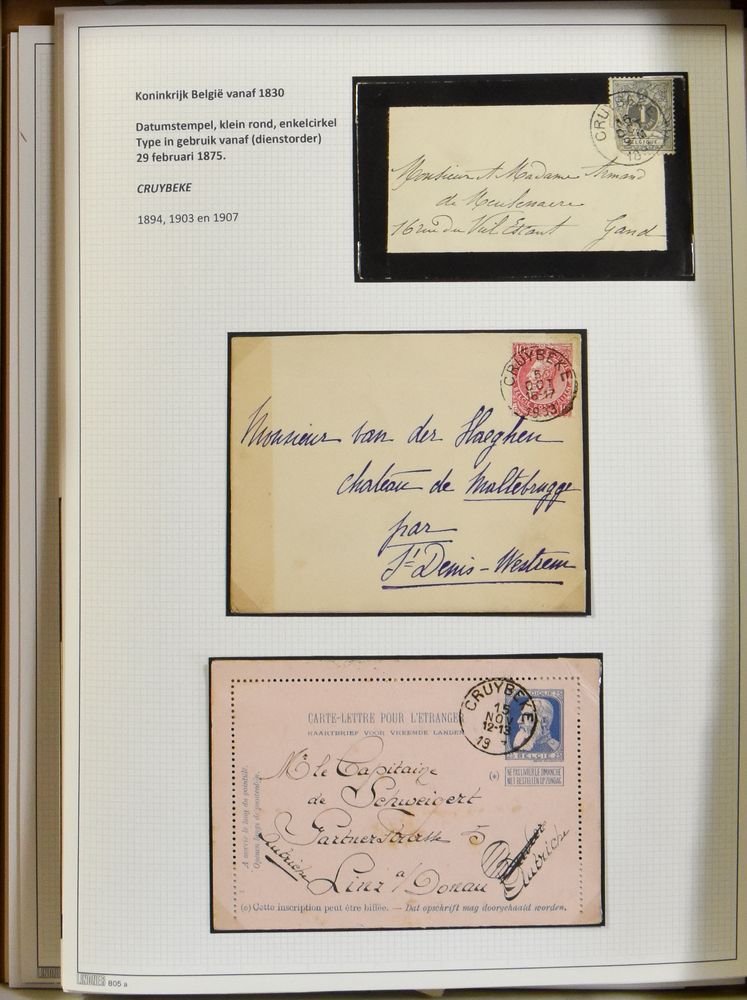 Koninkrijk België vanaf 1830
Datumstempel, klein rond, enkelcirkel
Type in gebruik vanaf (dienstorder)
29 februari 1875.
CRUYBEKE
1894, 1903 en 1907
1
BELGIQUE
Monsieur & Madame Armand
de Meulenaere
16 rue du Val Escaut Gand
CRUYBEKE
5
OCT
16-17
1903
Monsieur van der Haeghen
chateau de Maltebrugge
par
St Denis-Westrem
CARTE-LETTRE POUR L'ETRANGER
KAARTBRIEF VOOR VREEMDE LANDEN
CRUYBEKE
15
NOV
12-13
19
BELGIQUE
25 BELGIE 25
(*) NE PAS LIVRER LE DIMANCHE
NIET BESTELLEN OP ZONDAG
A ouvrir le long du pointillé.
Mr le Capitaine
de Schweigert
Gartnerstrasse 5
Linz a/Donau
Autriche
Autriche
(o) Cette inscription peut être biffée. — Dat opschrift mag doorgehaald worden.
LINDNER 805 a